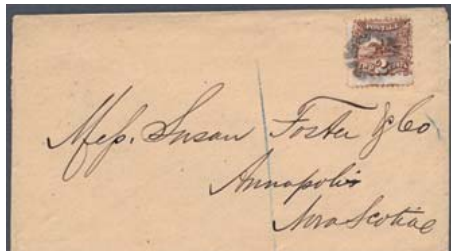 POSTAGE
2
Mess. Susan Foster & Co
Annapolis
Nova Scotia